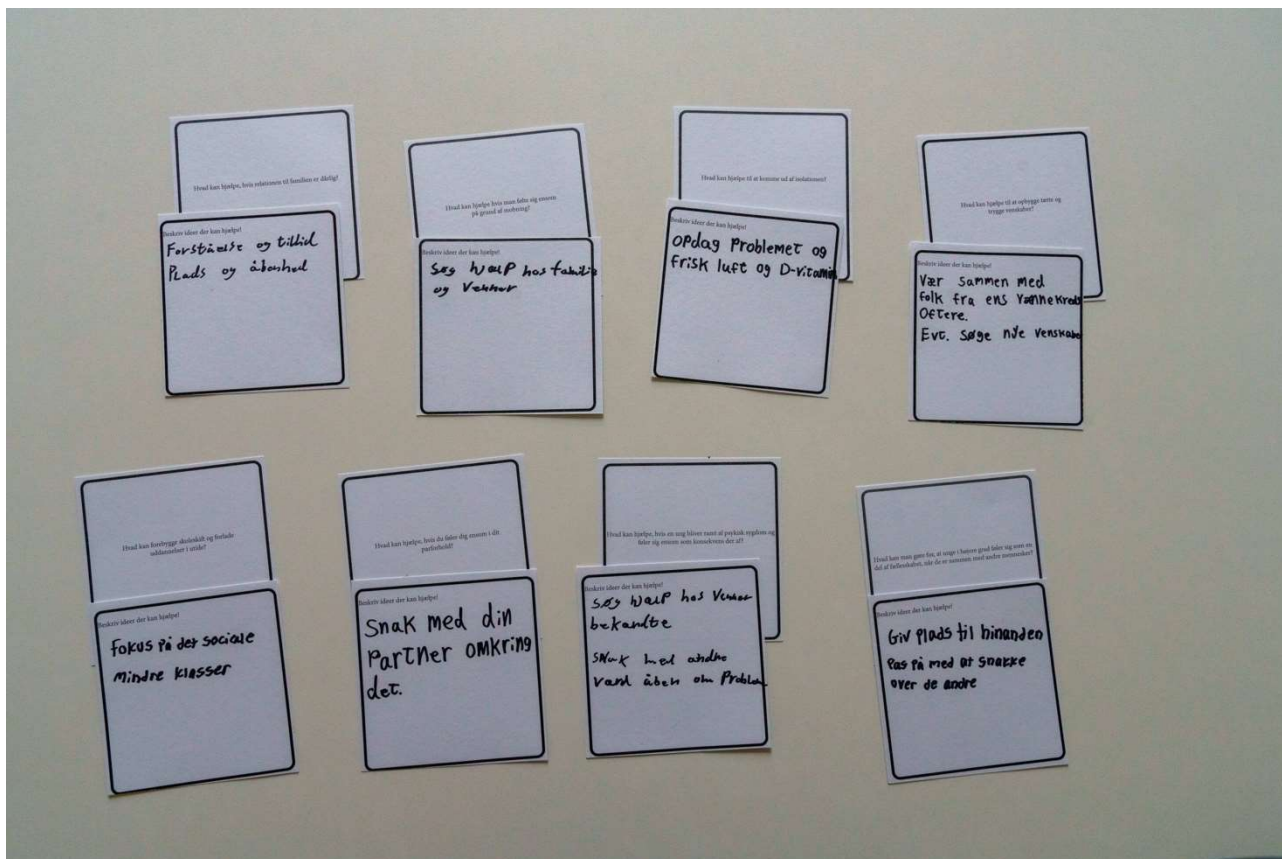 Hvad kan hjælpe, hvis relationen til familien er dårlig?
Beskriv ideer der kan hjælpe!
Forståelse og tillid
Plads og åbenhed
Hvad kan hjælpe hvis man føler sig ensom
på grund af mobning?
Beskriv ideer der kan hjælpe!
Søg hjælp hos familie
og venner
Hvad kan hjælpe til at komme ud af isolationen?
Beskriv ideer der kan hjælpe!
Opdag Problemet og
frisk luft og D-vitamin
Hvad kan hjælpe til at opbygge tætte og
trygge venskaber?
Beskriv ideer der kan hjælpe!
Vær sammen med
folk fra ens vennekreds
Oftere.
Evt. søge nye venskaber
Hvad kan forebygge skoleskift og forlade
uddannelser i utide?
Beskriv ideer der kan hjælpe!
Fokus på det sociale
mindre klasser
Hvad kan hjælpe, hvis du føler dig ensom i dit
parforhold?
Beskriv ideer der kan hjælpe!
Snak med din
Partner omkring
det.
Hvad kan hjælpe, hvis en ung bliver ramt af psykisk sygdom og
føler sig ensom som konsekvens der af?
Beskriv ideer der kan hjælpe!
Søg hjælp hos Venner
bekandte
Snak med andre
åben om Problem
Hvad kan man gøre for, at unge i højere grad føler sig som en
del af fællesskabet, når de er sammen med andre mennesker?
Beskriv ideer der kan hjælpe!
Giv Plads til hinanden
Pas på med at snakke
over de andre